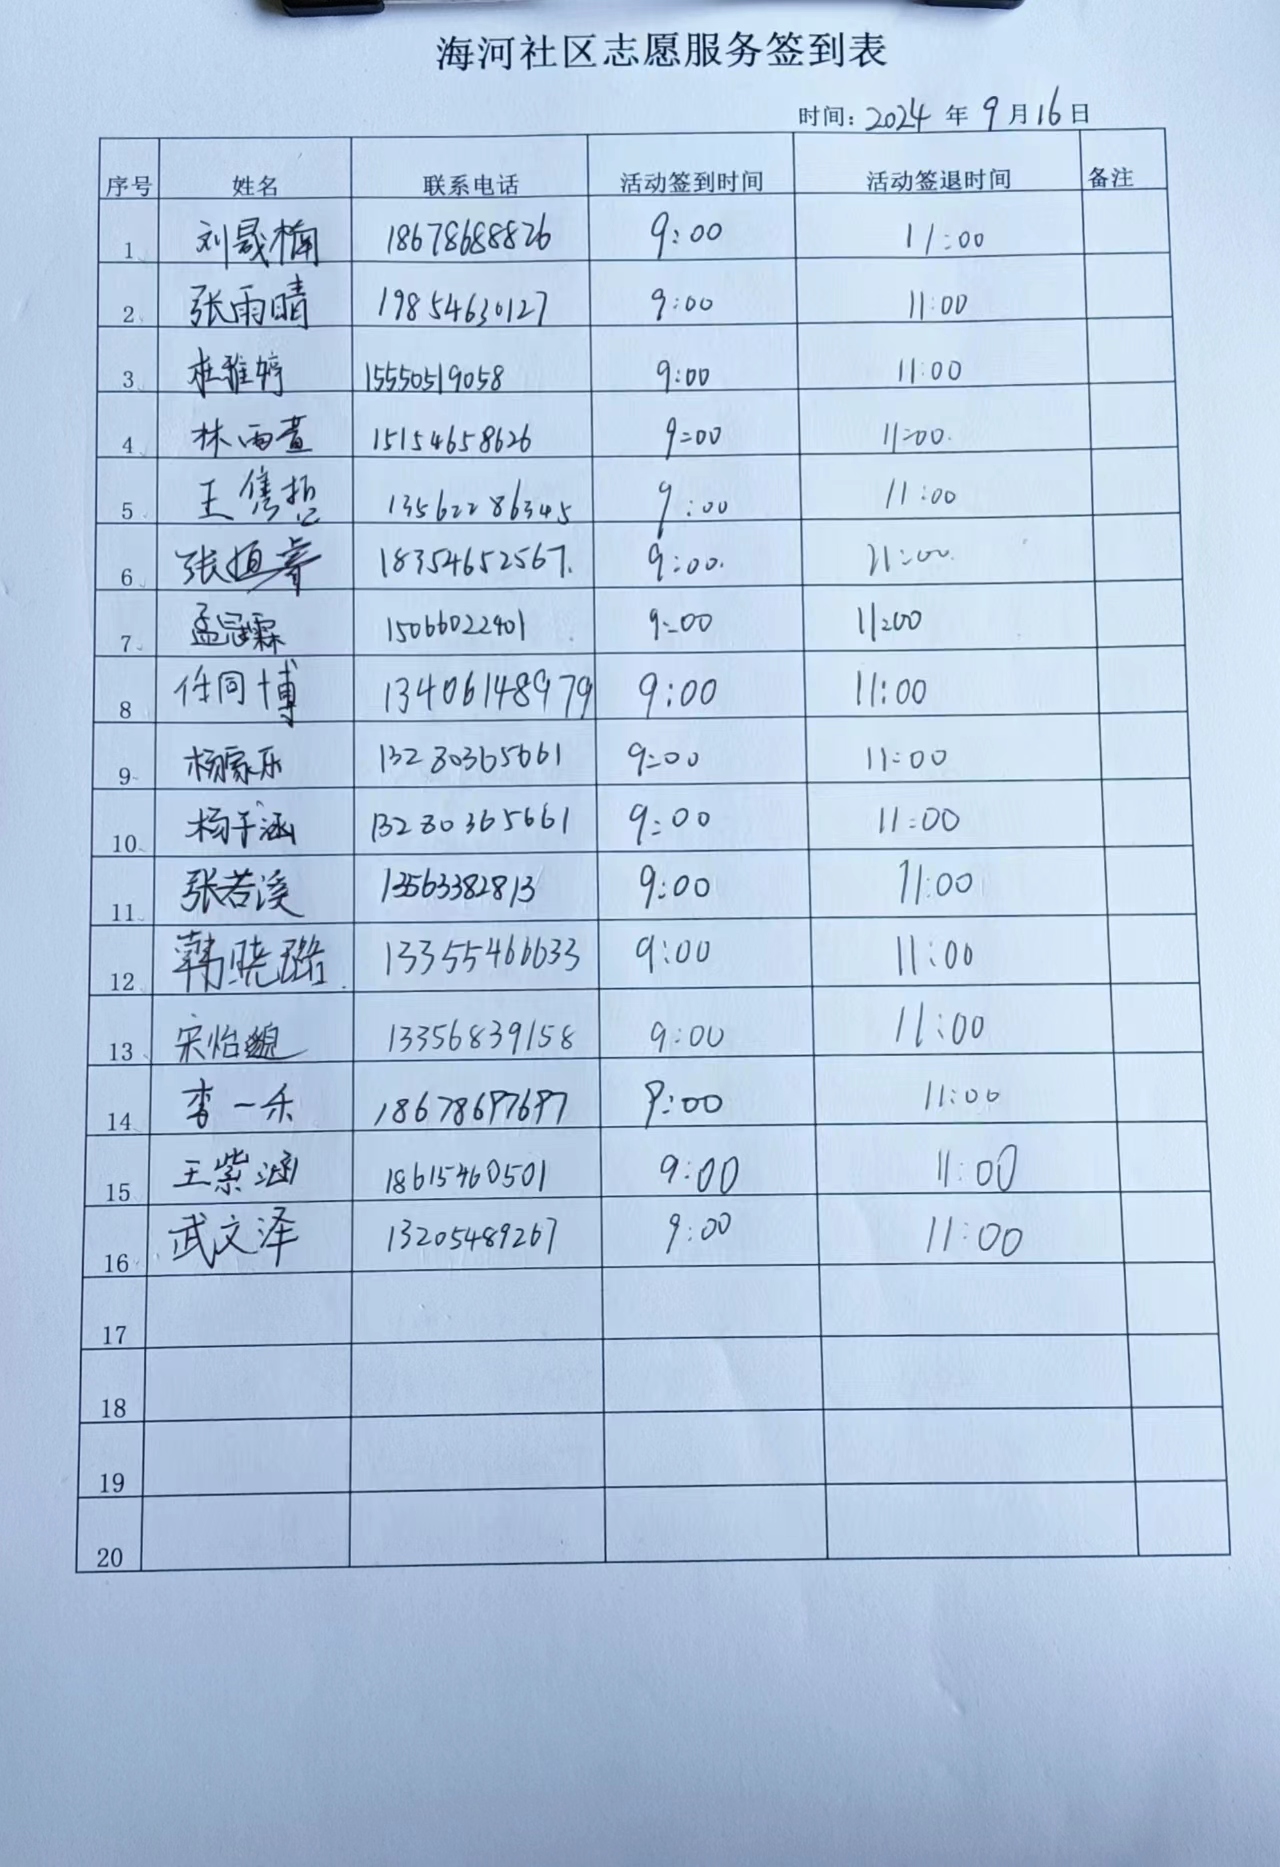 海河社区志愿服务签到表
时间：2024 年 9 月 16 日
序号 姓名 联系电话 活动签到时间 活动签退时间 备注
1 刘晟楠 18678688826 9:00 11:00
2 张雨晴 19854630127 9:00 11:00
3 杜雅婷 15550519058 9:00 11:00
4 林雨萱 15154658626 9:00 11:00
5 王隽哲 13562286345 9:00 11:00
6 张恒睿 18354652567 9:00 11:00
7 孟冠霖 15066022401 9:00 11:00
8 任同博 13406148979 9:00 11:00
9 杨家乐 13280365661 9:00 11:00
10 杨子涵 13280365661 9:00 11:00
11 张若溪 13563382813 9:00 11:00
12 韩晓璐 13355466633 9:00 11:00
13 宋怡 13356839158 9:00 11:00
14 李一禾 18678697697 9:00 11:00
15 王紫涵 18615460501 9:00 11:00
16 武文泽 13205489267 9:00 11:00
17
18
19
20